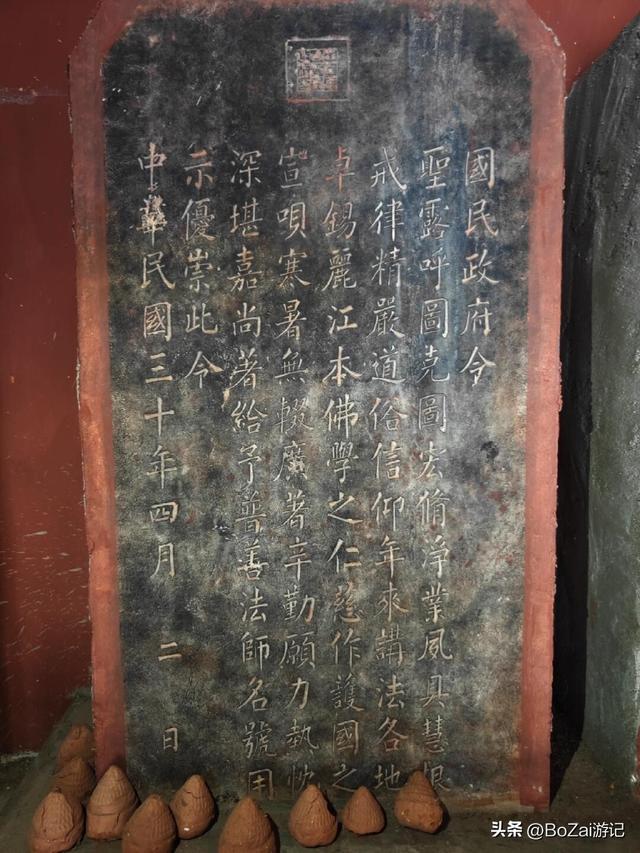 國民政府令
聖露呼圖克圖宏脩淨業夙具慧根
戒律精嚴道俗信仰年來講法各地
卓錫麗江本佛學之仁慈作護國之
宣唄寒暑無輟廣著辛勤願力熱忱
深堪嘉尚著給予普善法師名號用
示優崇此令
中華民國三十年四月二日
头条 @BoZai游记